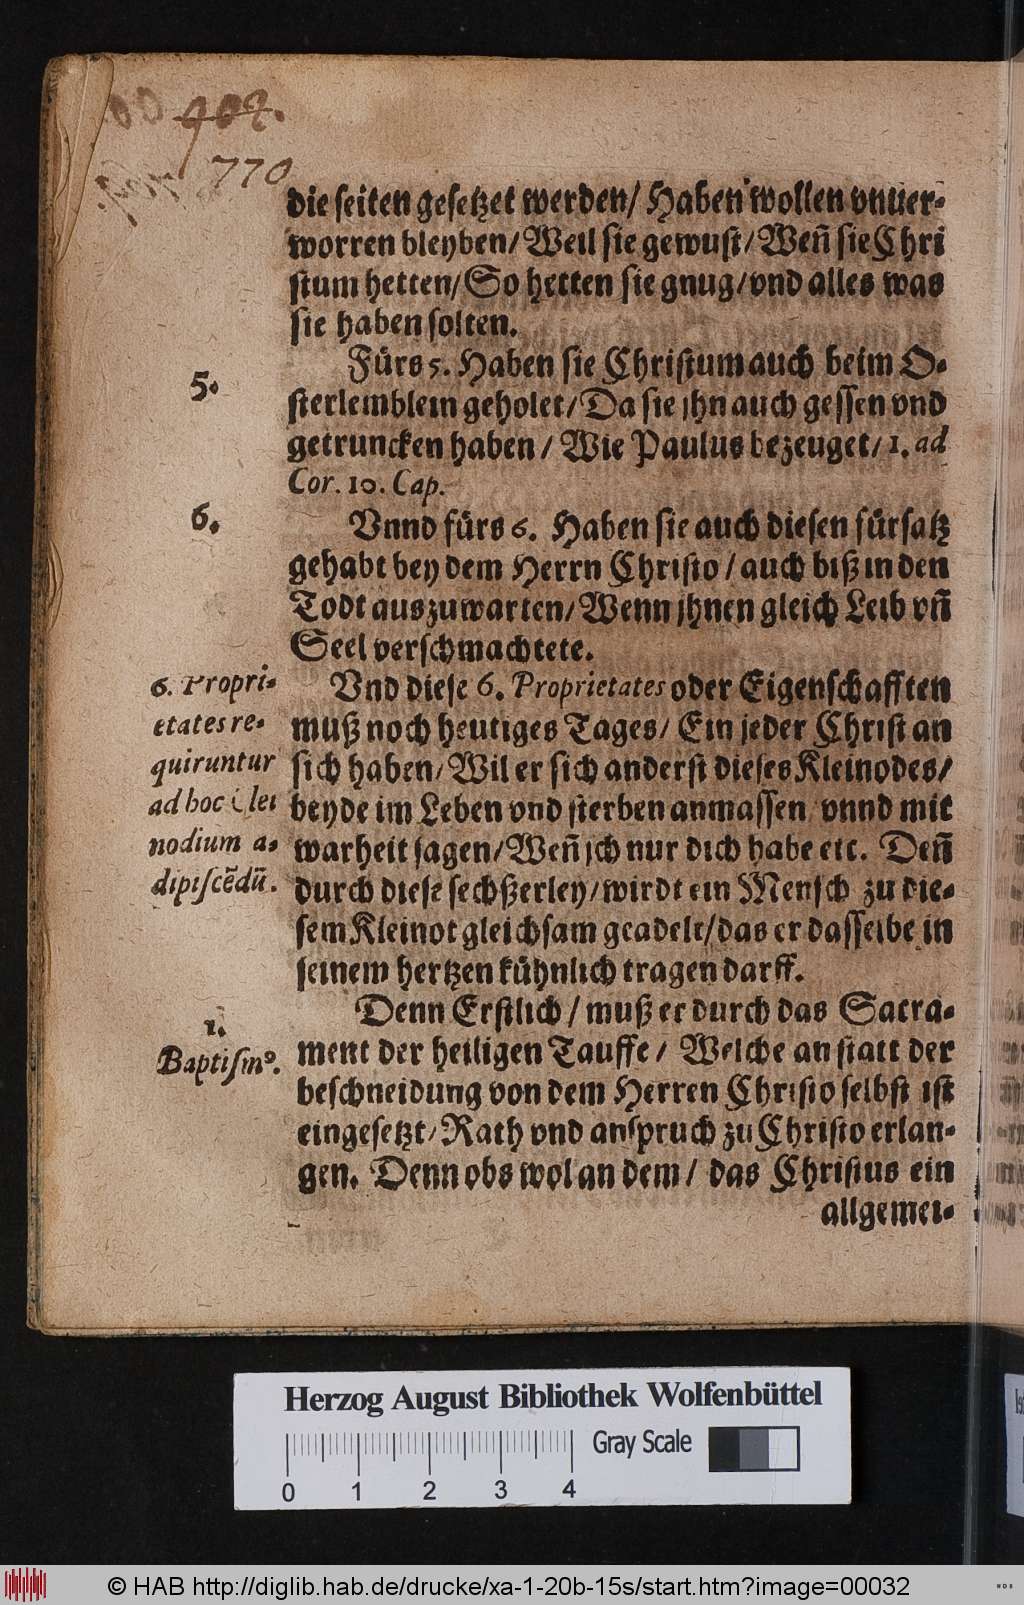 902.
770
die seiten gesetzet werden/ Haben wollen vnuer-
worren bleyben/ Weil sie gewust/ Weñ sie Chri
stum hetten/ So hetten sie gnug/ vnd alles was
sie haben solten.
5.
Fürs 5. Haben sie Christum auch beim O-
sterlemblein geholet/ Da sie jhn auch gessen vnd
getruncken haben/ Wie Paulus bezeuget/ 1. ad
Cor. 10. Cap.
6.
Vnnd fürs 6. Haben sie auch diesen fürsatz
gehabt bey dem Herrn Christo/ auch biß in den
Todt auszuwarten/ Wenn jhnen gleich Leib vñ
Seel verschmachtete.
6. Propri-
etates re-
quiruntur
ad hoc Clei
nodium a-
dipiscẽdũ.
Vnd diese 6. Proprietates oder Eigenschafften
muß noch heutiges Tages/ Ein jeder Christ an
sich haben/ Wil er sich anderst dieses Kleinodes/
beyde im Leben vnd sterben anmassen/ vnnd mit
warheit sagen/ Weñ jch nur dich habe etc. Deñ
durch diese sechßerley/ wirdt ein Mensch zu die-
sem Kleinot gleichsam geadelt/ das er dasselbe in
seinem hertzen kühnlich tragen darff.
1.
Baptismꝰ.
Denn Erstlich/ muß er durch das Sacra-
ment der heiligen Tauffe/ Welche an statt der
beschneidung von dem Herren Christo selbst ist
eingesetzt/ Rath vnd anspruch zu Christo erlan-
gen. Denn obs wol an dem/ das Christus ein
allgemei-
Herzog August Bibliothek Wolfenbüttel
Gray Scale
0 1 2 3 4
© HAB http://diglib.hab.de/drucke/xa-1-20b-15s/start.htm?image=00032